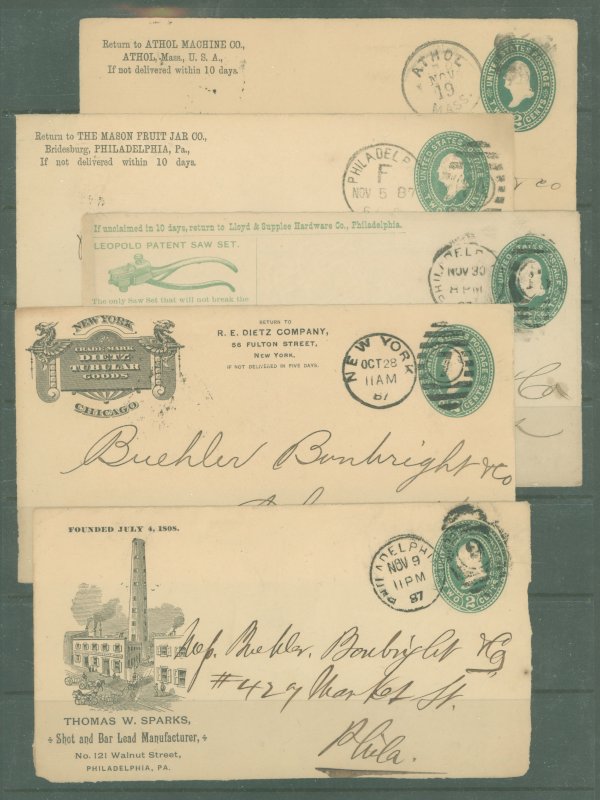 Return to ATHOL MACHINE CO.,
ATHOL, Mass., U. S. A.,
If not delivered within 10 days.
ATHOL
NOV
19
MASS.
UNITED STATES POSTAGE
2 CENTS
Return to THE MASON FRUIT JAR CO.,
Bridesburg, PHILADELPHIA, Pa.,
If not delivered within 10 days.
PHILADELP
F
NOV 5 87
UNITED STATES
TWO
& Co
If unclaimed in 10 days, return to Lloyd & Supplee Hardware Co., Philadelphia.
LEOPOLD PATENT SAW SET.
The only Saw Set that will not break the
PHILADELPHIA
NOV 30
8 PM
87
Co
NEW YORK
TRADE MARK
DIETZ
TUBULAR
GOODS
CHICAGO
RETURN TO
R. E. DIETZ COMPANY,
56 FULTON STREET,
NEW YORK.
IF NOT DELIVERED IN FIVE DAYS.
NEW YORK
OCT 28
11AM
87
POSTAGE
CENTS
Buehler Bonbright & Co
FOUNDED JULY 4, 1808.
THOMAS W. SPARKS,
Shot and Bar Lead Manufacturer,
No. 121 Walnut Street,
PHILADELPHIA, PA.
PHILADELPHI
NOV 9
11PM
87
TWO 2 CENTS
Buehler. Bonbright & Co
#427 Market St.
Phila.